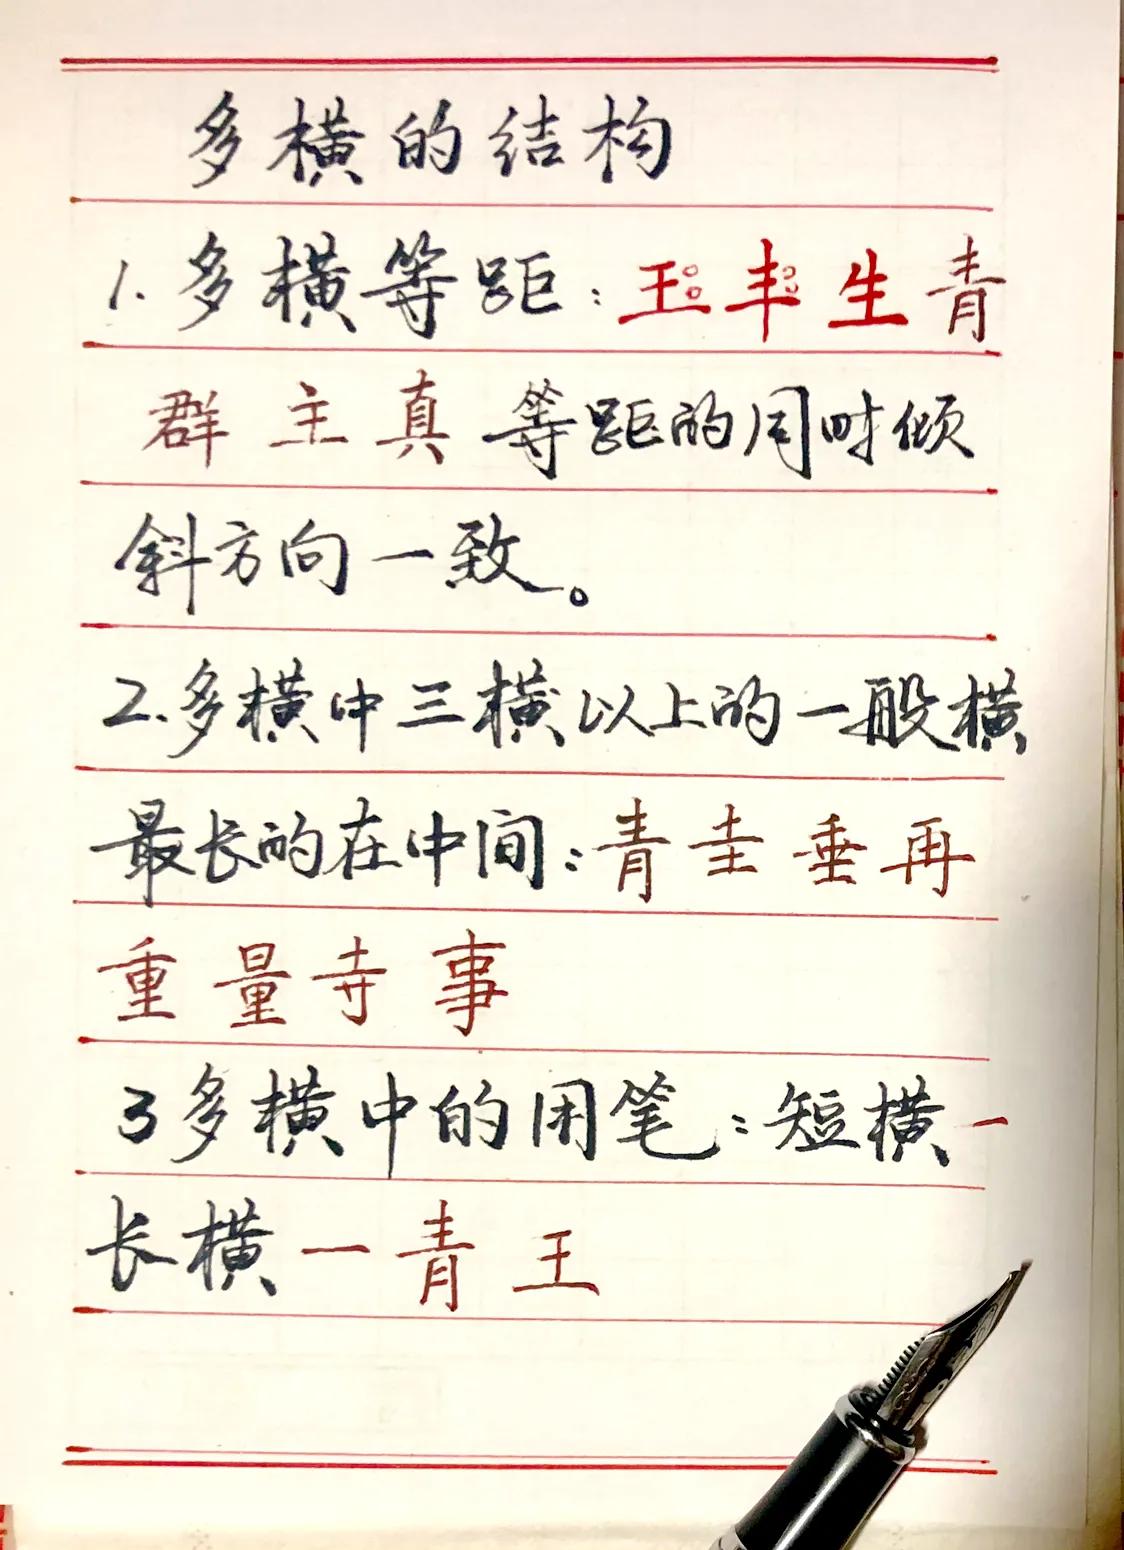 多横的结构
1.多横等距：王丰生青
群主真等距的同时倾
斜方向一致。
2.多横中三横以上的一般横
最长的在中间：青圭垂再
重量寺事
3多横中的用笔：短横一
长横一青王